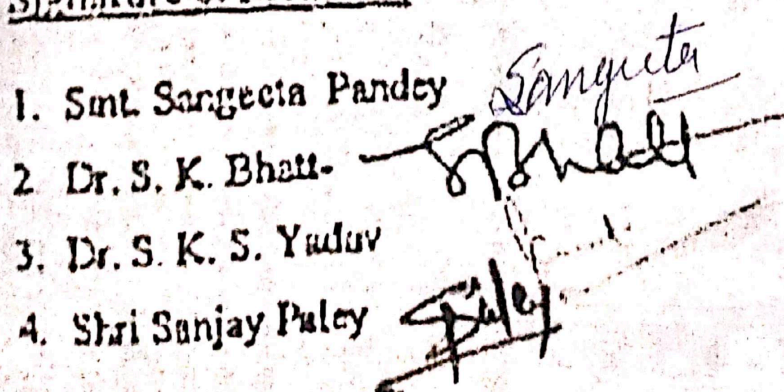 1. Smt. Sangeeta Pandey Sangeeta
2 Dr. S. K. Bhatt- SBhatt
3. Dr. S. K. S. Yadav
4. Shri Sanjay Paley Paley